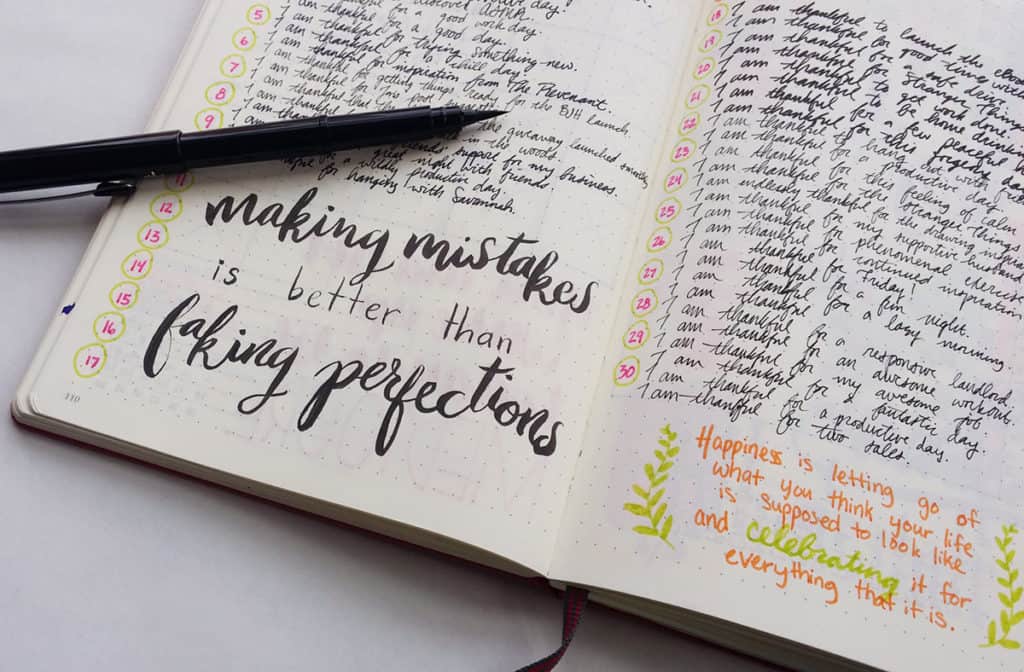 5
6
7
8
9
11
12
13
14
15
16
17
I am thankful for a good work day.
I am thankful for a good day.
I am thankful for trying something new.
I am thankful for to chill day
I am thankful for inspiration from The Revenant.
I am thankful for getting things ready for the BJH launch.
the giveaway launched smoothly
in the woods.
friends' support for my business.
night with friends.
for a wildly productive day.
for hanging with Savannah.
making mistakes
is better than
faking perfections
110
18
19
20
21
22
23
24
25
26
27
28
29
30
I am thankful to launch the ebook
I am thankful for good times with
I am thankful for a safe drive.
I am thankful for Stranger Things
I am thankful to get work done.
I am thankful to be home
I am thankful for a few peaceful
I am thankful for this
I am thankful to hang out with
I am thankful for a productive day
I am thankful for this feeling of calm
I am thankful for Stranger Things
I am endlessly thankful for the drawing
I am thankful for my supportive husband
I am thankful for phenomenal exercise
I am thankful for continued inspiration
I am thankful for Friday!
I am thankful for a fun night.
I am thankful for a lazy morning
I am thankful for a responsive landlord.
I am thankful for an awesome workout.
I am thankful for my awesome job.
I am thankful for a fantastic day.
I am thankful for a productive day.
I am thankful for two sales.
Happiness is letting go of
what you think your life
is supposed to look like
and celebrating it for
everything that it is.